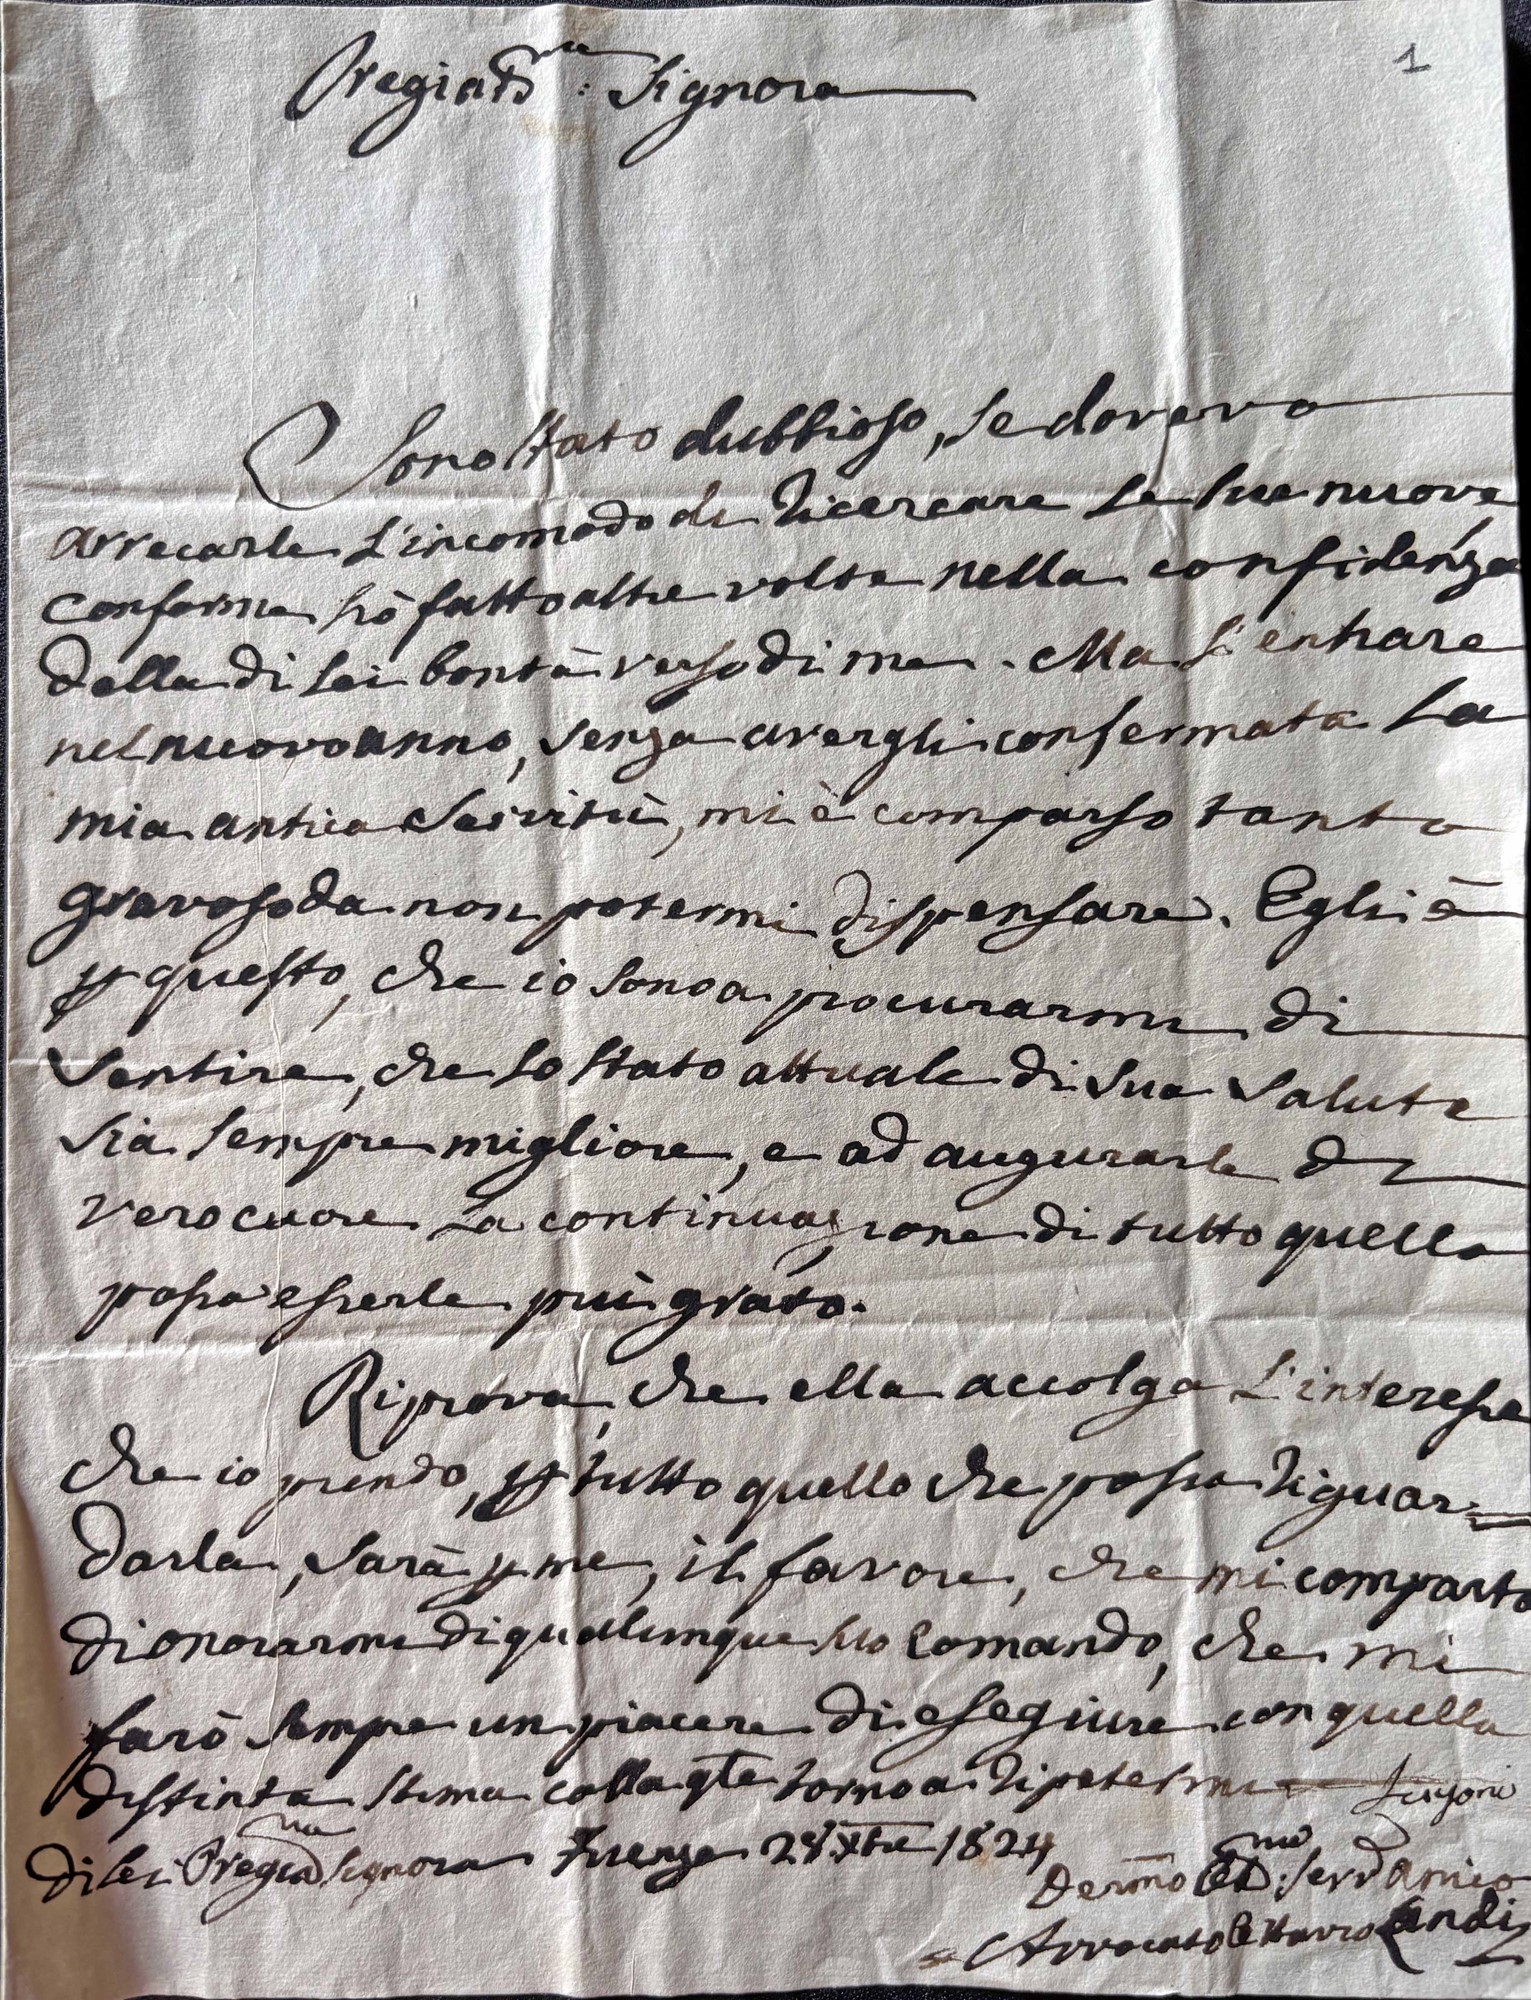 1
Pregiatma: Signora
Sono stato dubbioso, se doveva
arrecarle L'incomodo di Ricercare Le sue nuove
conforme hò fatto altre volte nella confidenza
della di Lei bontà verso di me. Ma L'entrare
nel nuovo anno, senza avergli confermata La
mia antica Servitù, mi è comparso tanto
gravoso da non potermi dispensare. Egli è
p questo, che io sono a procurarmi di
Sentire, che Lo stato attuale di Sua Salute
Sia Sempre migliore, e ad augurarle di
vero cuore La continuazione di tutto quello
possa esserle più grato.
Riprova, che ella accolga L'interesse
che io prendo, p tutto quello che possa Riguar=
darla, Sarà p me, il favore, che mi comparta
di onorarmi di qualunque suo Comando, che mi
farò Sempre un piacere di eseguire con quella
distinta stima colla qle torno a Ripetermi
di Lei Pregma Signora Firenze 28 Xbre 1824
Avvocato Ottavio Landi